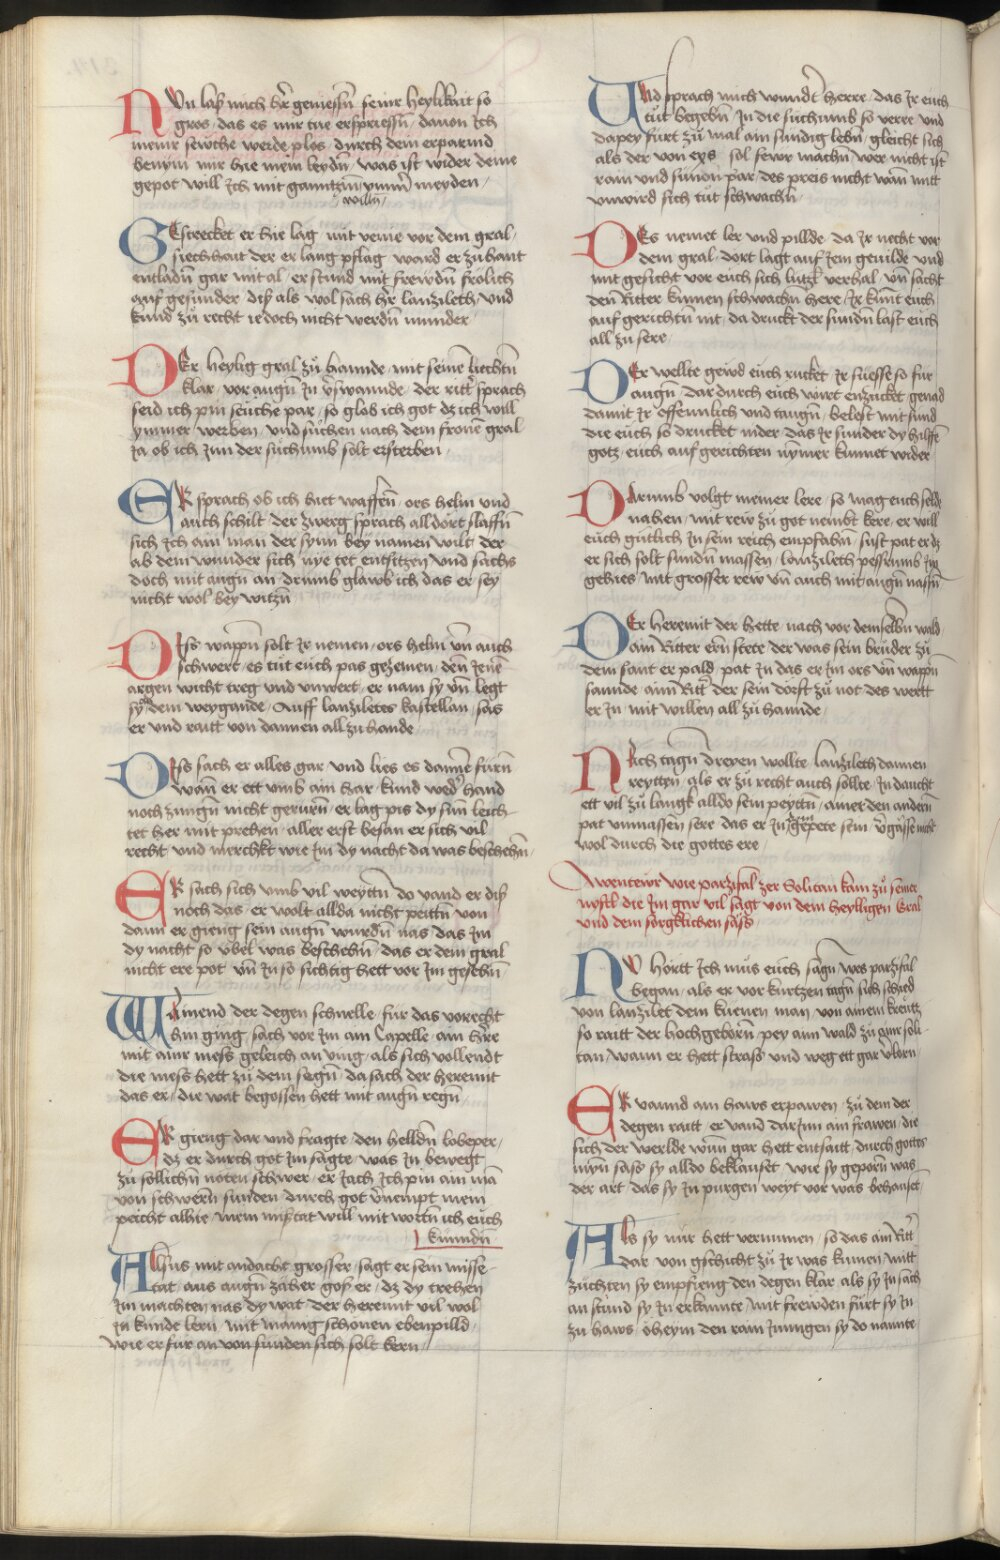 Nun las mich her geniessn̄ seiner heylikait so
gros · das es mir tue erspriessn̄ · dauon Ich
meinr sewche werde plos · durch dein erparmd
benym mir hie mein leydn̄ · was ist wider deine
gepot will Ich mit ganntzm̄ ymm̄ meyden ·
willn̄ ·
Gestrecket er hie lag mit venie vor dem gral ·
siechhait der er lang pflag ward er zuhant
entladn̄ gar mital · er stund mit frewdn̄ frolich
auf gesunder diss als wol sach her lanzileth · und
kund zu recht iedoch nicht werdn̄ munder
Der heylig gral zu hannde · mit seinē liechtn̄
klar · vor augn̄ In v̄swannde · der rittr̄ sprach
seid ich pin seuche par · so glob ich got dz ich will
ymmer werben · und suchen nach dem fronē gral
Ja ob ich Inn der suchumb solt ersterben ·
Er sprach ob ich hiet waffen̄ · ors helm und
auch schilt der zwerg sprach alldort slaffn̄
sich Ich ain man der synn bey namen wilt der
ab dem wunder sich nye tet entsitzen und sachs
doch mit augn̄ an · drumb glawb ich das er sey
nicht wol bey witzn̄
Diss wappn̄ solt Ir nemen · ors helm vn̄ auch
schwert · es tut euch pas gezemen · den Jenē
argen wicht treg und unwert · er nam sy vn̄ legt
sy dem weygande · Auff lanziletes kastellan · sas
er und raitt von dannen all zu hande
Diss sach er alles gar und lies es dannē furn̄
wan̄ er ett umb ain har · kund wed̄ hand
noch zungn̄ nicht gerurn̄ · er lag pis dy sun̄ leich ·
tet her mit prehen · aller erst besan er sich vil
recht und merchkt wie Im dy nacht da was beschehn̄ ·
Er sach sich umb vil weyttn̄ do vand er diss
noch das · er wolt allda nicht peittn̄ von
dann er gieng sein augn̄ wurdn̄ nas · das Im
dy nacht so vbel was beschehn̄ · das er dem gral
nicht ere pot vn̄ In so sichtig hett vor Im gesehn̄
Wainend der degen schnelle · fur das vorrecht
hin ging · sach vor Im ain Capelle · ain hr̄re
mit ainr mess geleich an ving · als sich vollendt
die mess hett zu dem segn̄ da sach der heremit
das er · die wat begossen hett mit augn̄ regn̄
Er gieng dar und fragte · den helldn̄ lobeper ·
dz er durch got Im sagte · was In bewegt
zu sollichn̄ noten schwer · er Jach Ich pin ain mā
von schwern sunden · durch got v̄nempt mein
peicht alhie · mein missetat will mit wortn̄ ich euch
kunndn̄
Allsus mit andacht grosser · sagt er sein misse ·
tat · aus augn̄ zaher goss er · dz dy trehen
Im machten nas dy wat · der heremit vil wol
In kunde lern · mit manig schonen ebenpilld ·
wie er fur an von sunden sich solt kern ·
Und sprach mich wundt̄ herre · das Ir euch
tut begebn̄ · In die suchumb so verre und
dapey furt zu mal ain sundig lebn̄ · gleicht sich
als der von eys · sol fewr machn̄ · wer nicht ist
rain und sunon par · des preis nicht wan̄ mitt
unwird sich tut schwachn̄ ·
Des nemet ler und pillde · da Ir necht vor
dem gral · dort lagt auf Jem gevilde und
mit gesicht vor euch sich lutzl̄ verhal · vn̄ sacht
den̄ Ritter kumen schwachn̄ here · Ir kunt euch
auf gerichtn̄ nit · da druckt der sundn̄ last euch
all zu sere
Der wellte geird euch rucket Ir suesse so fur
augn̄ · dar durch euch wirt enzucket genad
damit Ir offennlich und taugn̄ · belest mit sund
die euch so drucket nider · das Ir sunder dy hilffn̄
gotz euch auf gerichten nymer kunnet wider
Darumb volgt meiner lere · so mag euch selde
nahen · mit rew zu got nembt kere · er will
euch gutlich In sein reich empfahn̄ · sust pat er dz
er sich solt sundn̄ massen · lanzileth pesserumb Im
gehies mit grosser rew vn̄ auch mit augn̄ nassn̄
Der heremit der hette · nach vor demselbn̄ wald
ain̄ Ritter ern̄ stete der was sein bruder zu
dem sant er pald · pat In das er Im ors vn̄ wappn̄
sannde · ainn̄ Rittr̄ der sein dorft zu not · des wertt
er In · mit willen all zu hannde ·
Nach tagn̄ dreyen wollte lanzileth dannen
reytten · als er zu recht auch sollte · In daucht
ett vil zu langk alldo sein peyttn̄ · ainer den andern̄
pat unmassen sere das er In gepete sein v̄gässe nicht
wol durch die gottes ere
Awentewr wie parzifal zer Solitan kam zu seiner
nyftl̄ die Im gar vil sagt von dem heylligen Gral
und dem sorgklichen säss ·
Nw hortt Ich mus euch sagn̄ wes parzifal
began · als er vor kurtzen tagn̄ sich schied
von lanzilet dem kuenen man · von ainem kreutz
so raitt der hochgeborn̄ · pey ain̄ wald zu ainr soli ·
tan wann er hett strass und weg ett gar v̄lorn ·
Er vannd ain haws erpawen · zu dem der
degen raitt · er vand dar Inn ain frawen · die
sich der werlde wun̄ gar hett entsaitt · durch gottes
myn̄ sass sy alldo beklauset wie sy geporn̄ was
der art · das sy In purgen weyt vor was behauset ·
Als sy nur hett vernumen · so das ain̄ Rittr̄
dar von gschicht zu Ir was kumen · mitt
zuchten sy empfieng den degen klar · als sy In sach
an stund sy In erkannte · mit frewden furt sy In
zu haws · oheym den rain Jungen sy do nannte